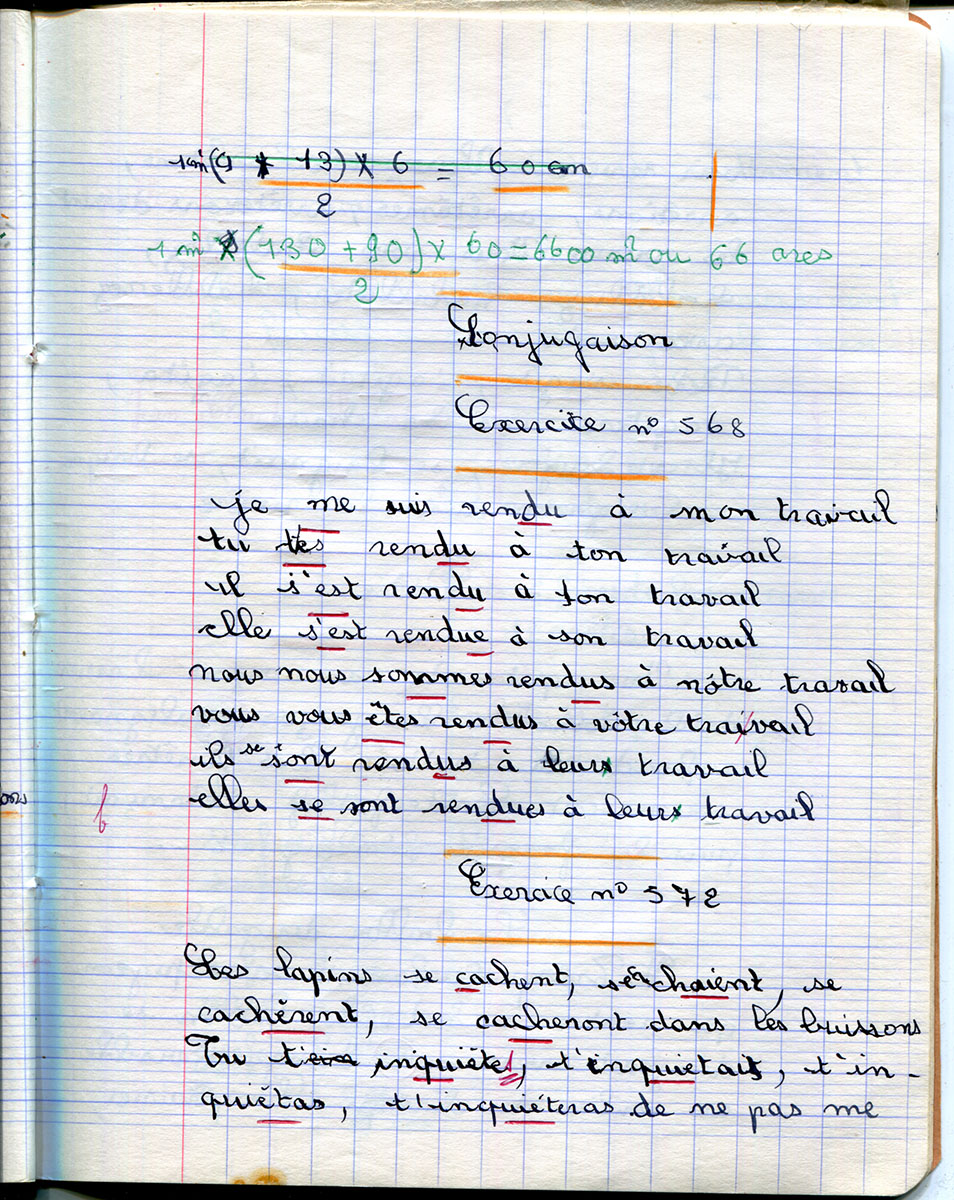 1 m² (9 + 13) x 6 = 60 cm
2
1 m² x (130 + 90) x 60 = 6600 m² ou 66 ares
2
Conjugaison
Exercice n° 568
je me suis rendu à mon travail
tu t'es rendu à ton travail
il s'est rendu à son travail
elle s'est rendue à son travail
nous nous sommes rendus à nôtre travail
vous vous êtes rendus à vôtre travail
ils se sont rendus à leurs travail
elles se sont rendues à leurs travail
Exercice n° 572
Les lapins se cachent, se cachaient, se
cachèrent, se cacheront dans les buissons
Tu t'inquiéte, t'inquiétais, t'in-
quiétas, t'inquiéteras de ne pas me